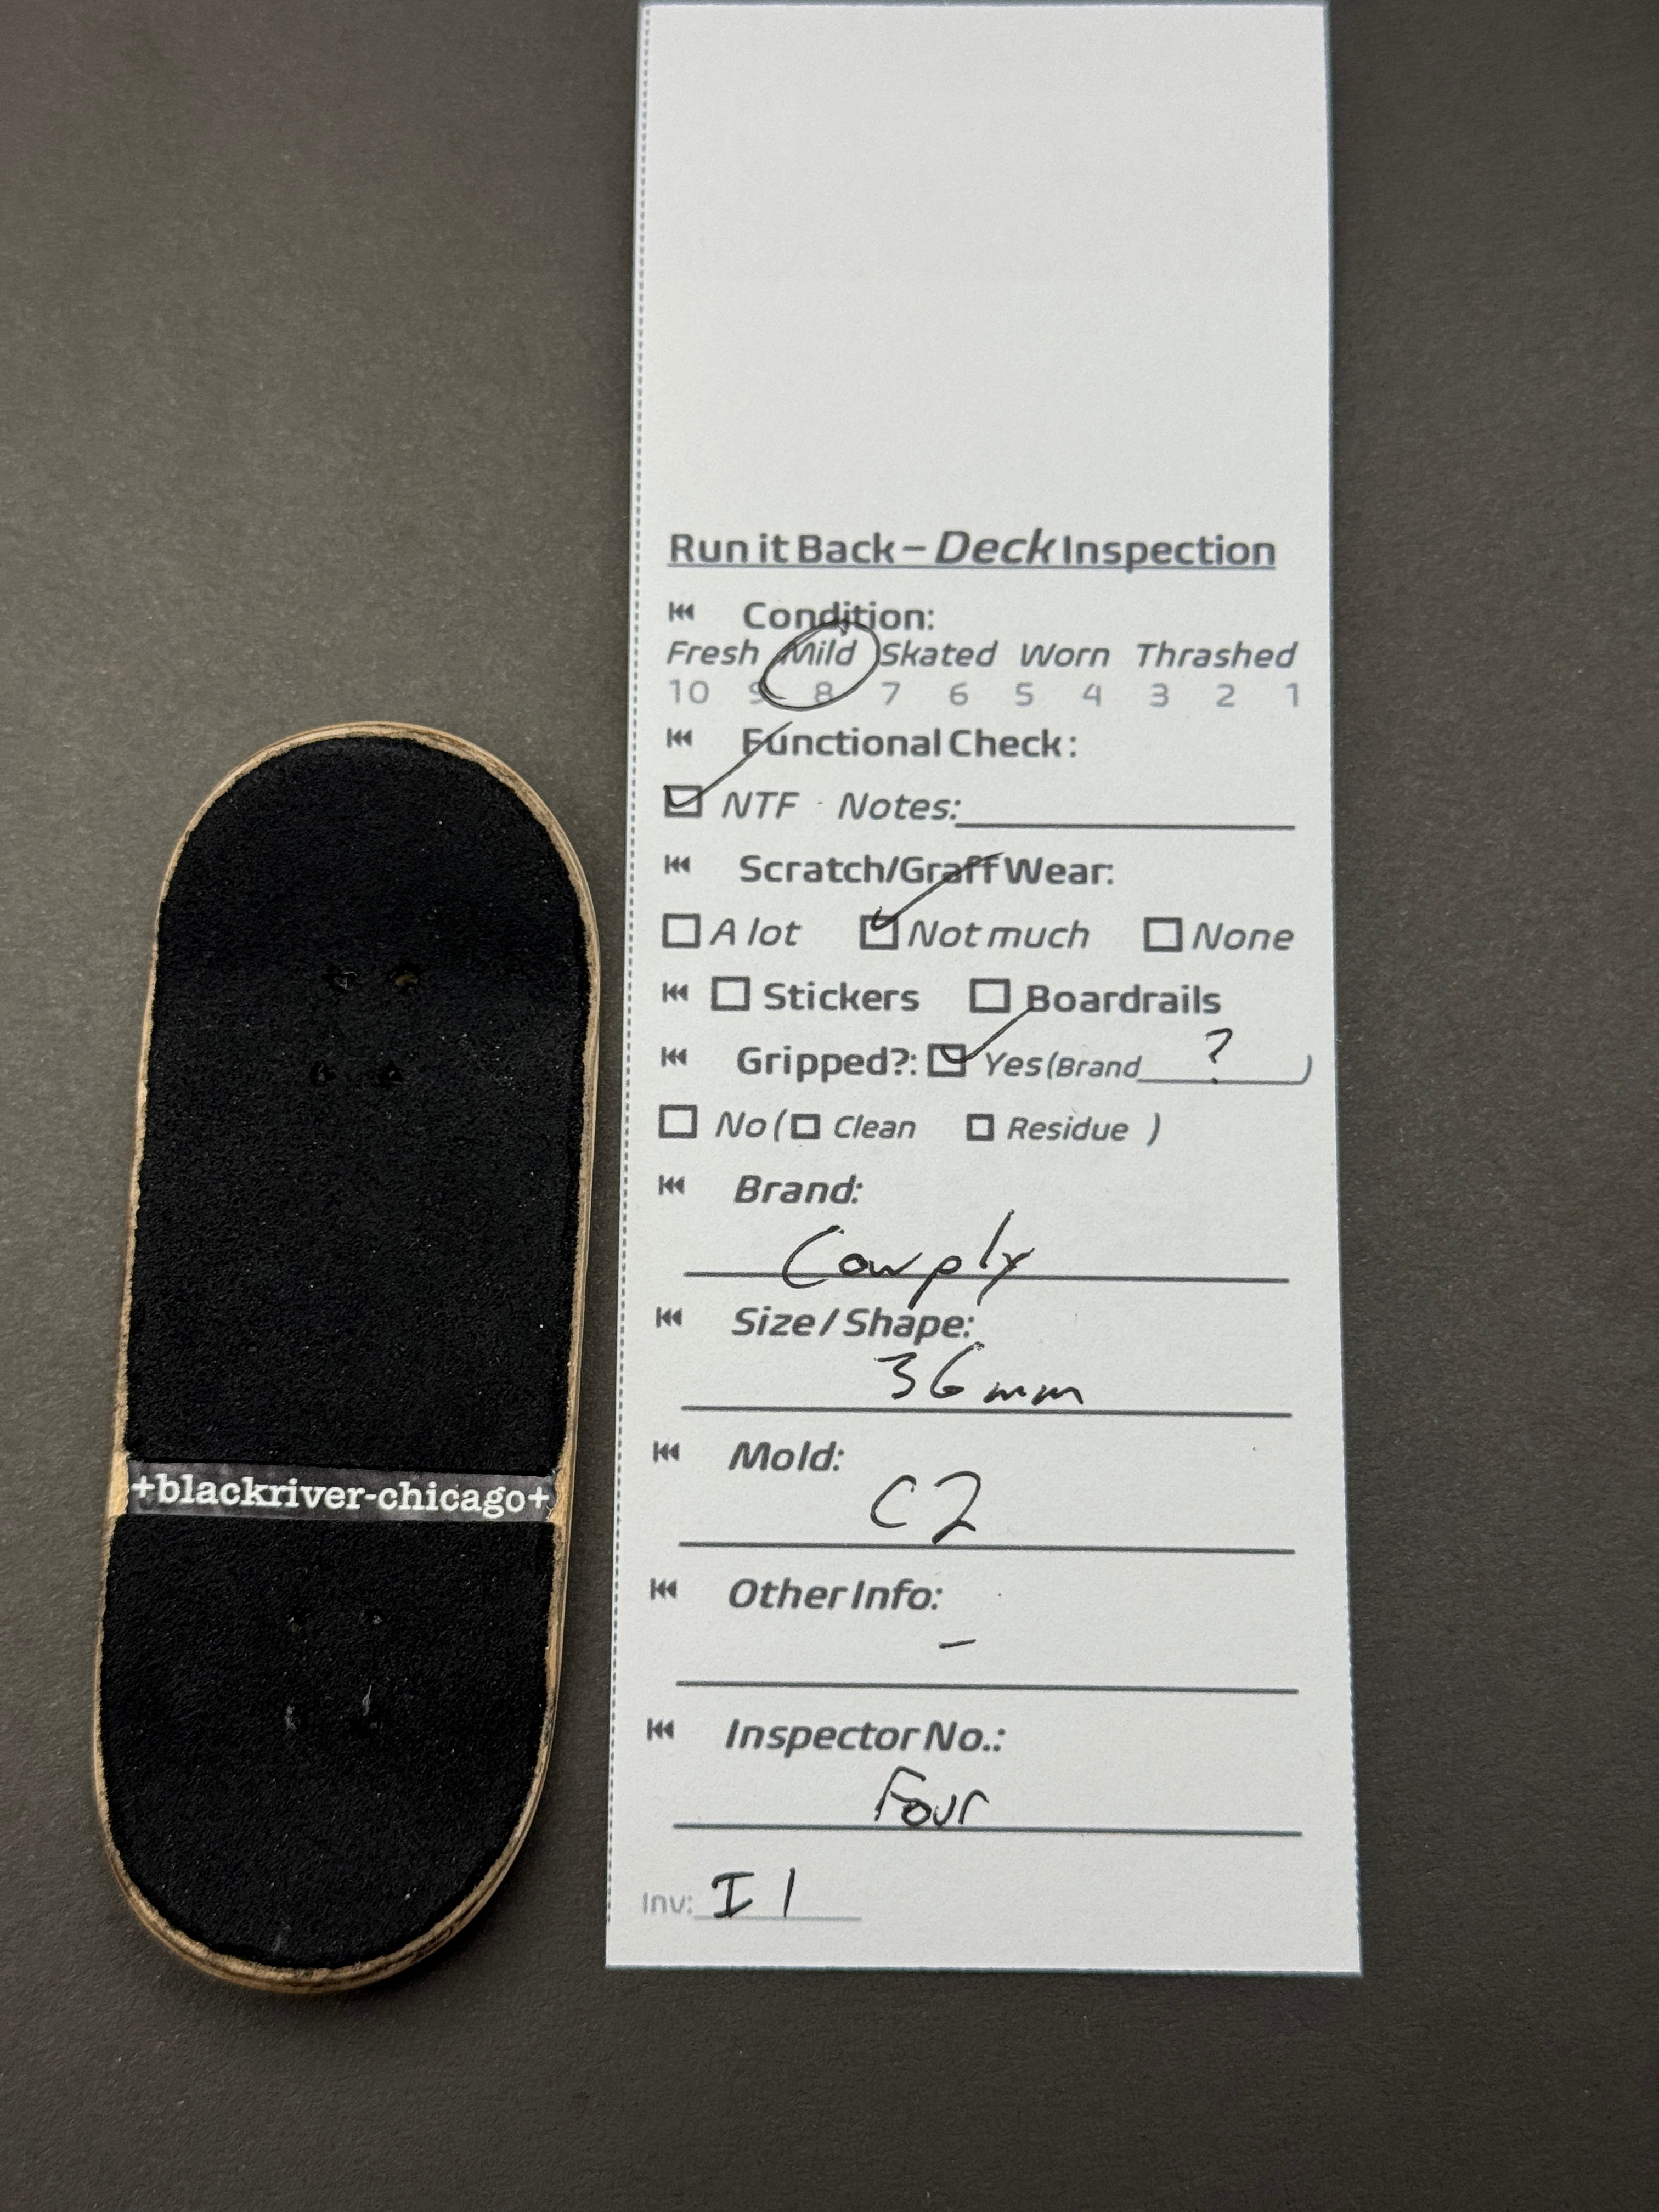 Run it Back – Deck Inspection
Condition:
Fresh Mild Skated Worn Thrashed
10 9 8 7 6 5 4 3 2 1
Functional Check:
NTF Notes:
Scratch/Graff Wear:
A lot Not much None
Stickers Boardrails
Gripped?: Yes (Brand ? )
No ( Clean Residue )
Brand:
Cowply
Size / Shape:
36mm
Mold:
C2
+blackriver-chicago+
Other Info:
–
Inspector No.:
Four
Inv: I1